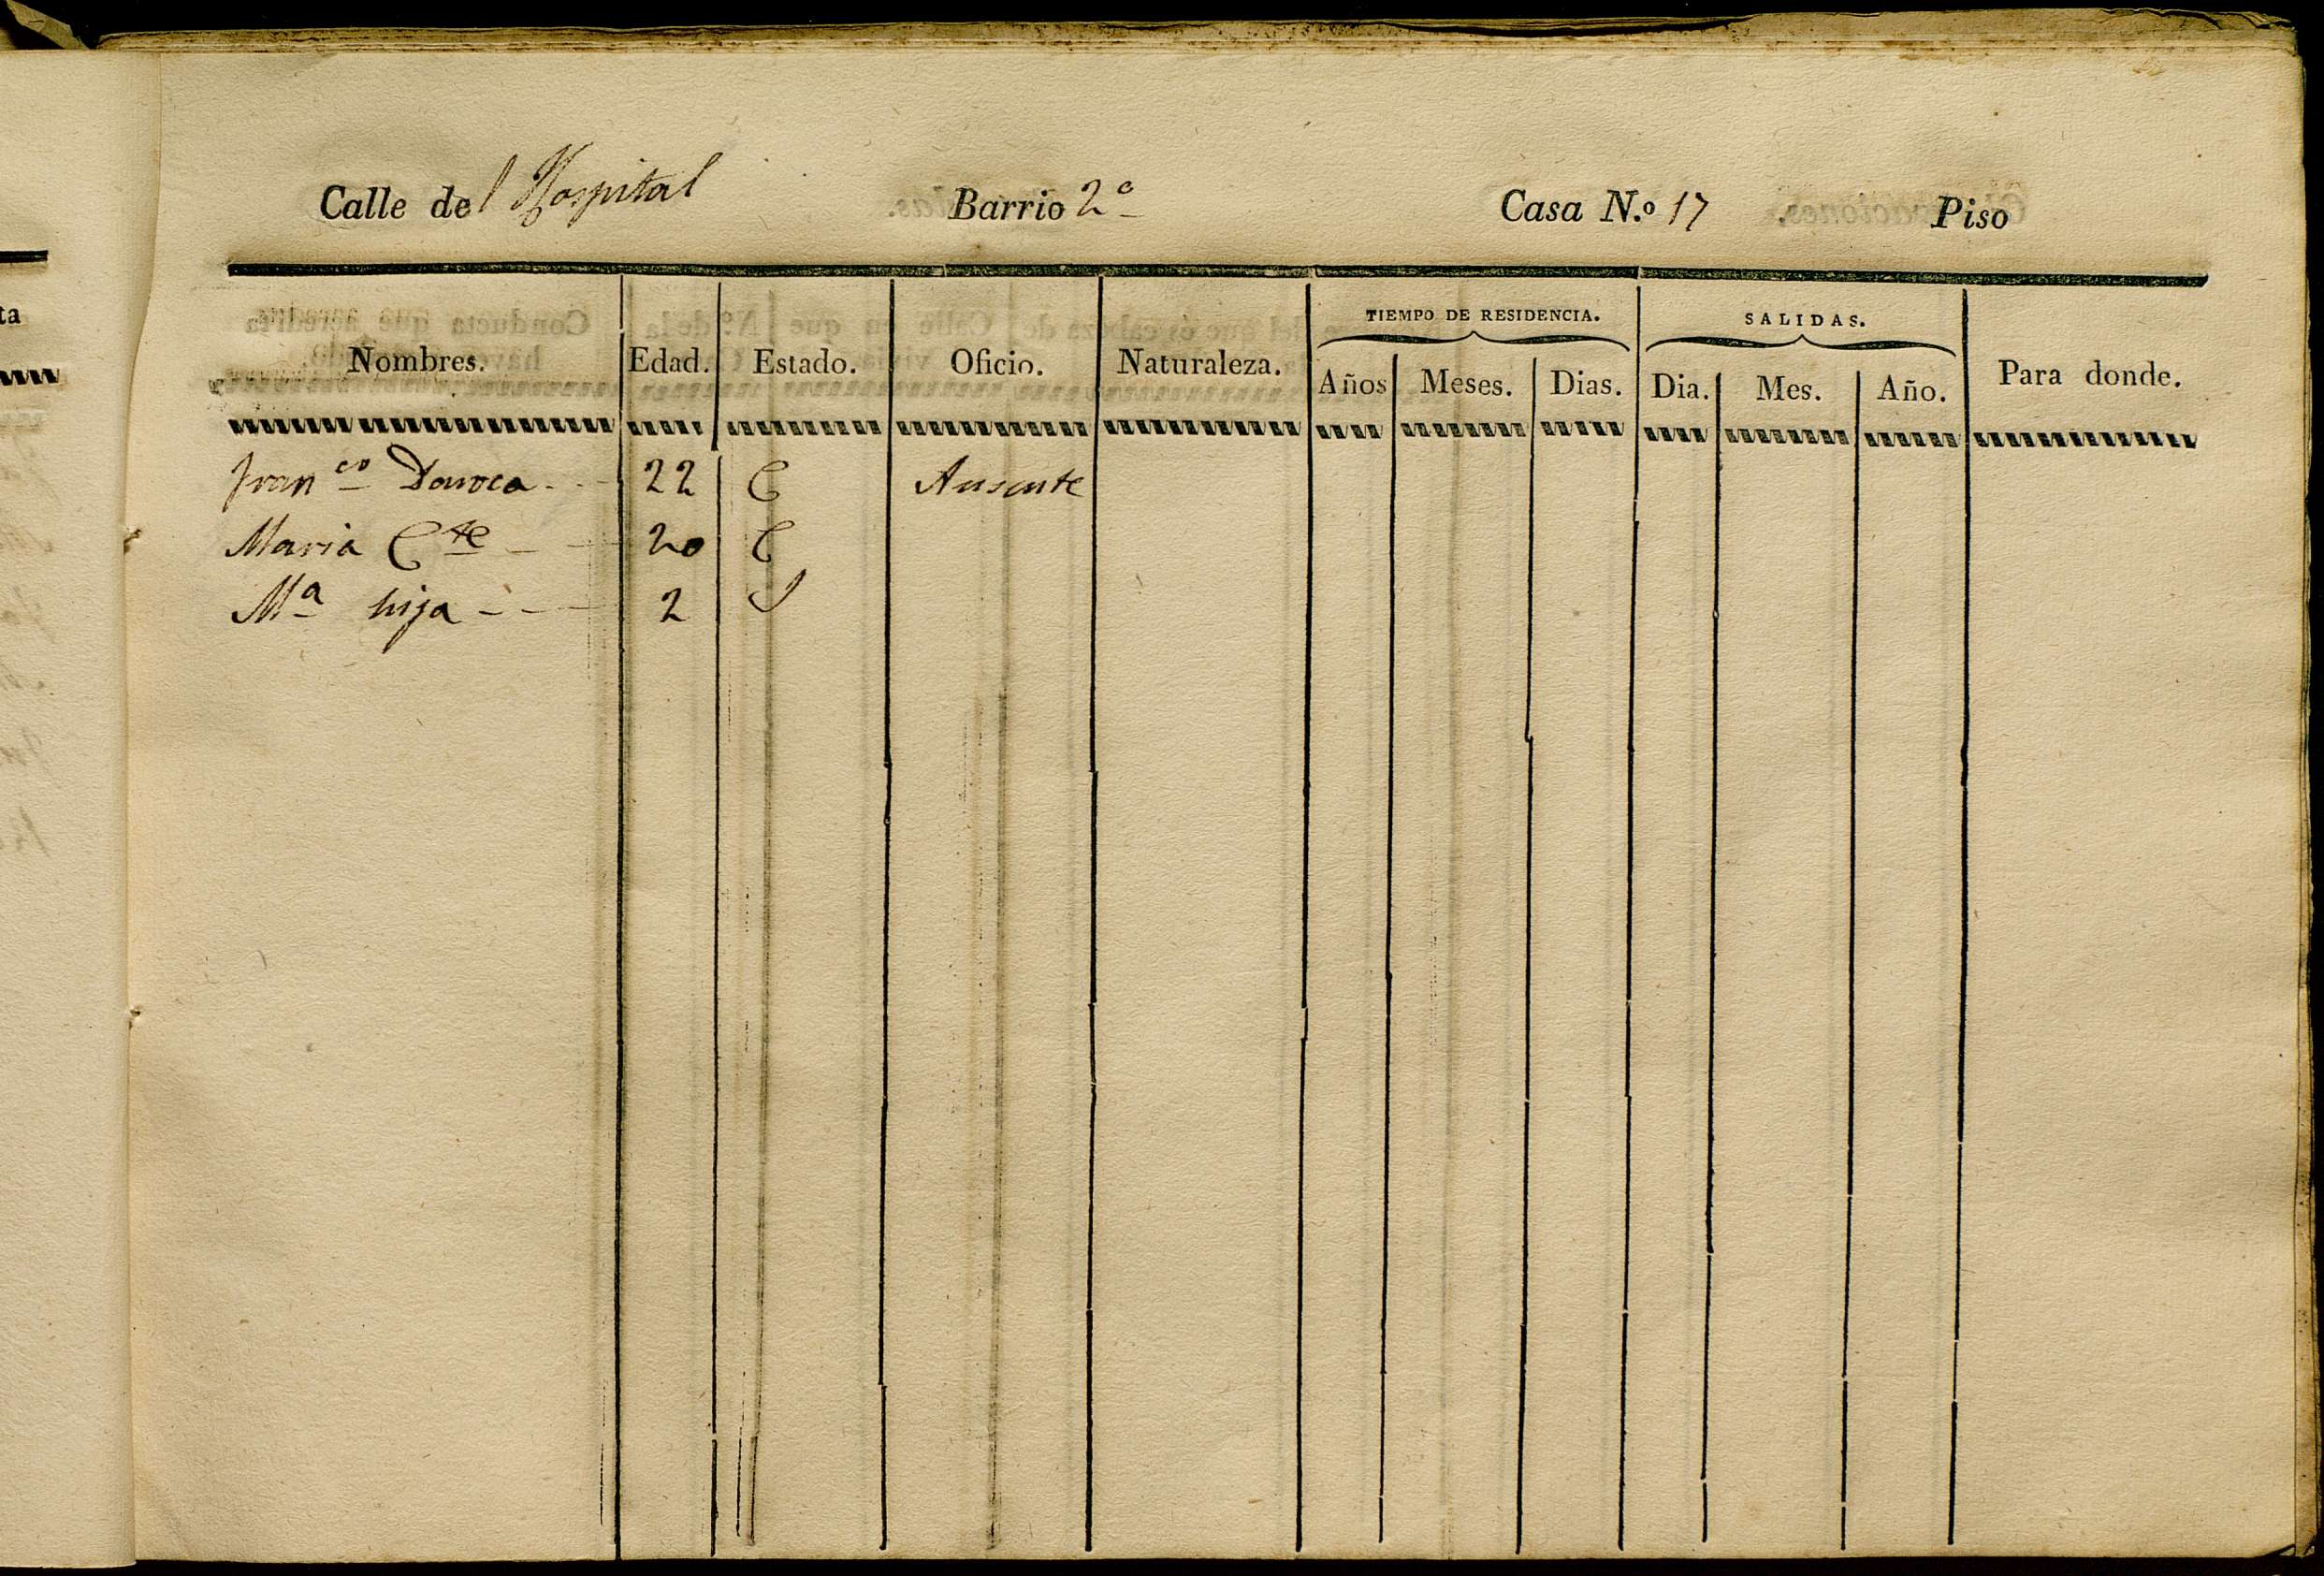 Calle del Hospital Barrio 2º Casa N.º 17 Piso
TIEMPO DE RESIDENCIA. SALIDAS.
Nombres. Edad. Estado. Oficio. Naturaleza. Años Meses. Dias. Dia. Mes. Año. Para donde.
Franco Daroca 22 C Ausente
Maria Cte 20 C
Mª hija 2 S
ta